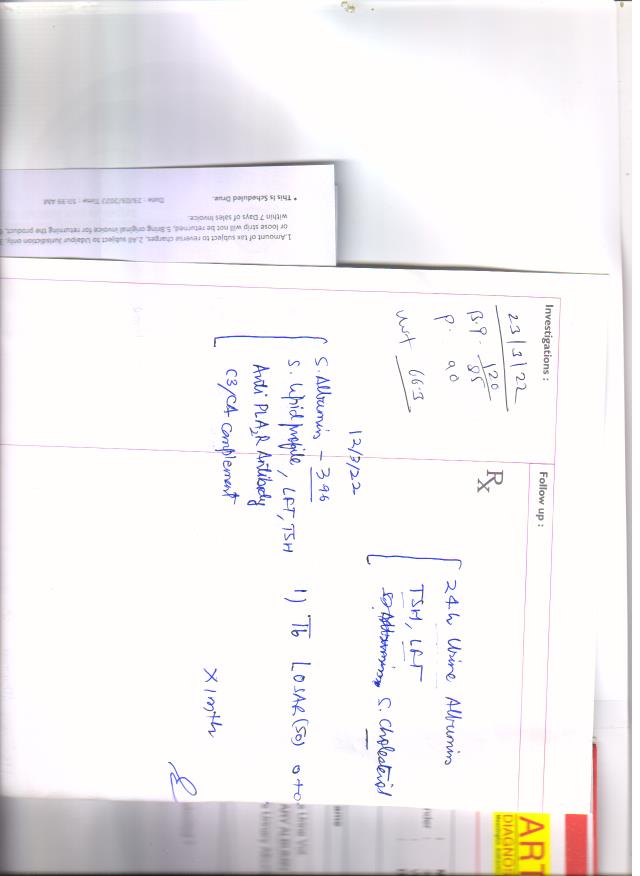 Investigations :
23/3/22
B.P. 120
85
P. 90
wt 66.3
12/3/22
S. Albumin - 3.96
S. Lipid profile, LFT, TSH
Anti PLA2R Antibody
C3/C4 complement
Follow up :
Rx
24 hr Urine Albumin
TSH, LFT
S. Albumin, S. Cholesterol
1) Tb LOSAR (50) 0+0
X 1 mth
* This is Scheduled Drug.
Date : 23/03/2022 Time : 10:39 AM
1.Amount of tax subject to reverse charges, 2.All subject to Udaipur Jurisdiction only, 3
or loose strip will not be returned, 5.Bring original invoice for returning the product,
within 7 Days of sales Invoice.
ART
DIAGNO